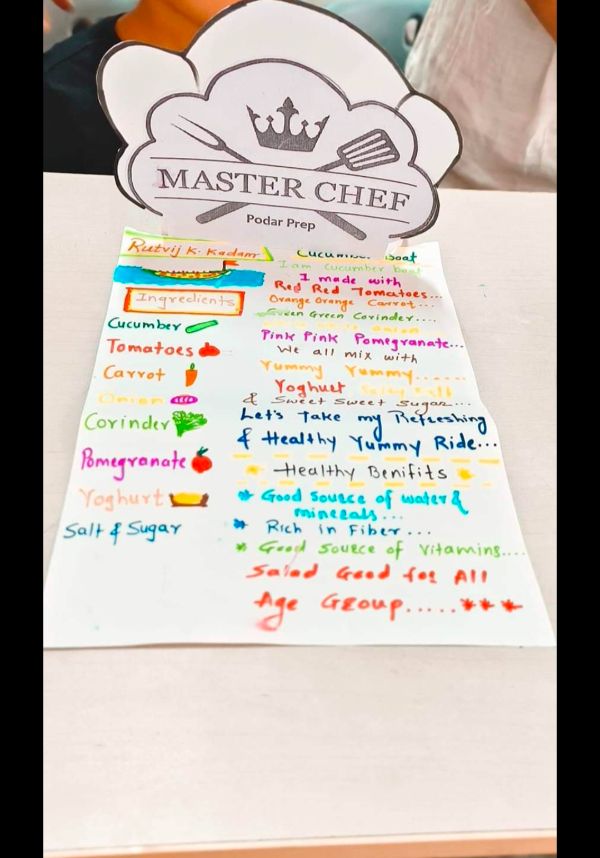 MASTER CHEF
Podar Prep
Rutvij K. Kadam
Ingredients
Cucumber
Tomatoes
Carrot
Onion
Corinder
Pomegranate
Yoghurt
Salt & Sugar
Cucumber Boat
I am cucumber boat
I made with
Red Red Tomatoes...
Orange Orange Carrot...
Green Green Corinder....
onion
Pink Pink Pomegranate...
We all mix with
Yummy Yummy......
Yoghurt Salt
& Sweet Sweet Sugar...
Let's Take my Refreshing
& Healthy Yummy Ride...
Healthy Benifits
* Good Source of water &
minerals...
* Rich in Fiber...
* Good Source of Vitamins....
Salad Good for All
Age Group.....***